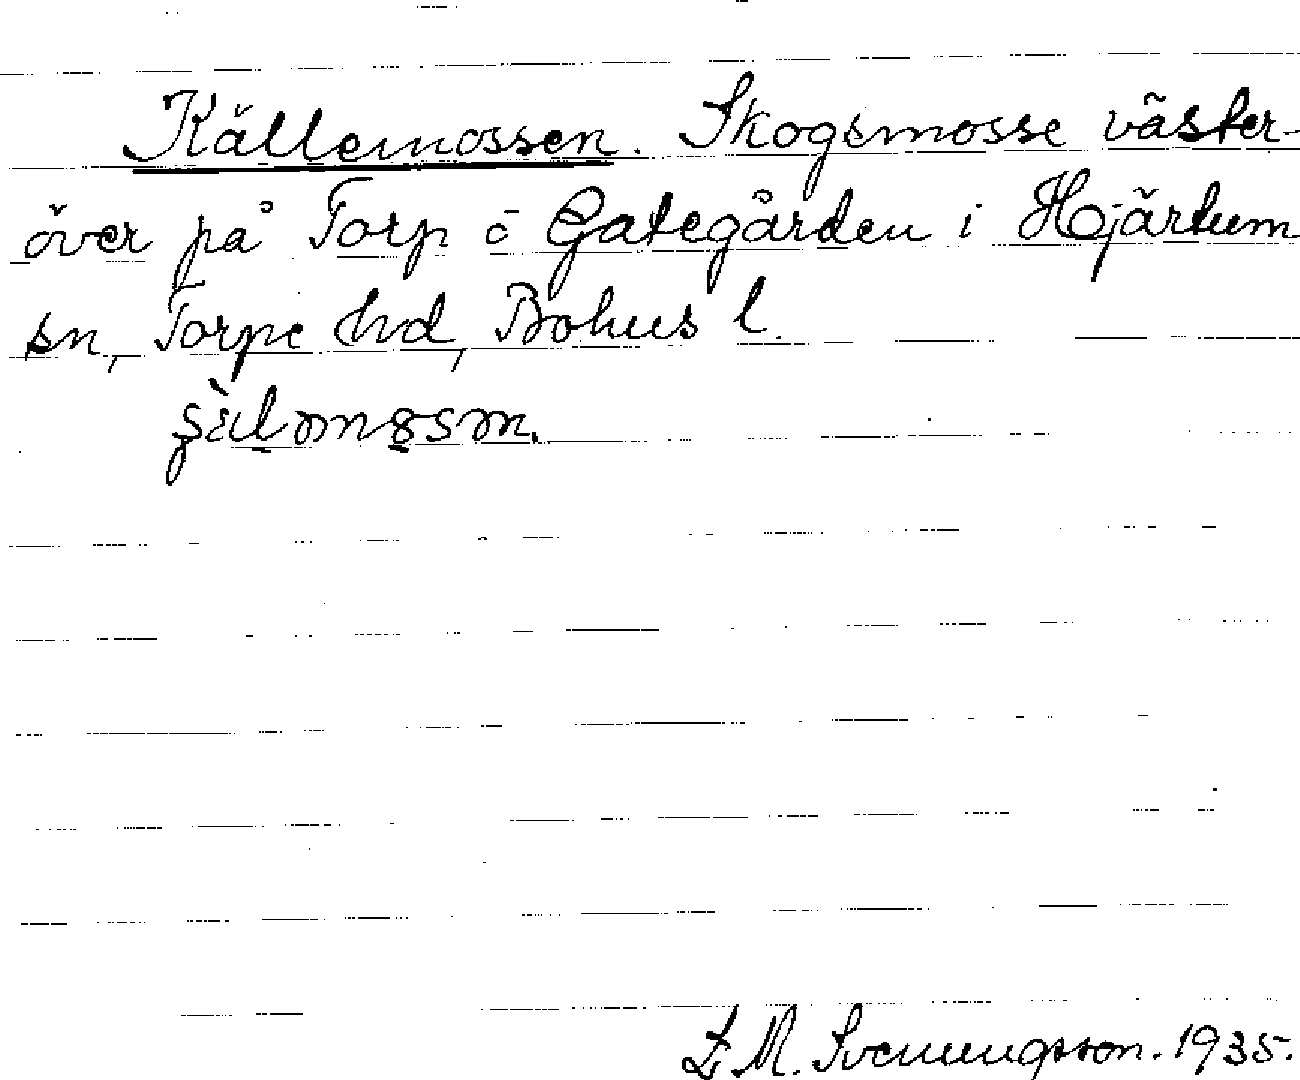 Källemossen. Skogsmosse väster-
över på Torp o Gategården i Hjärtum
sn, Torpe hd, Bohus l.
M. Svenungsson. 1935.